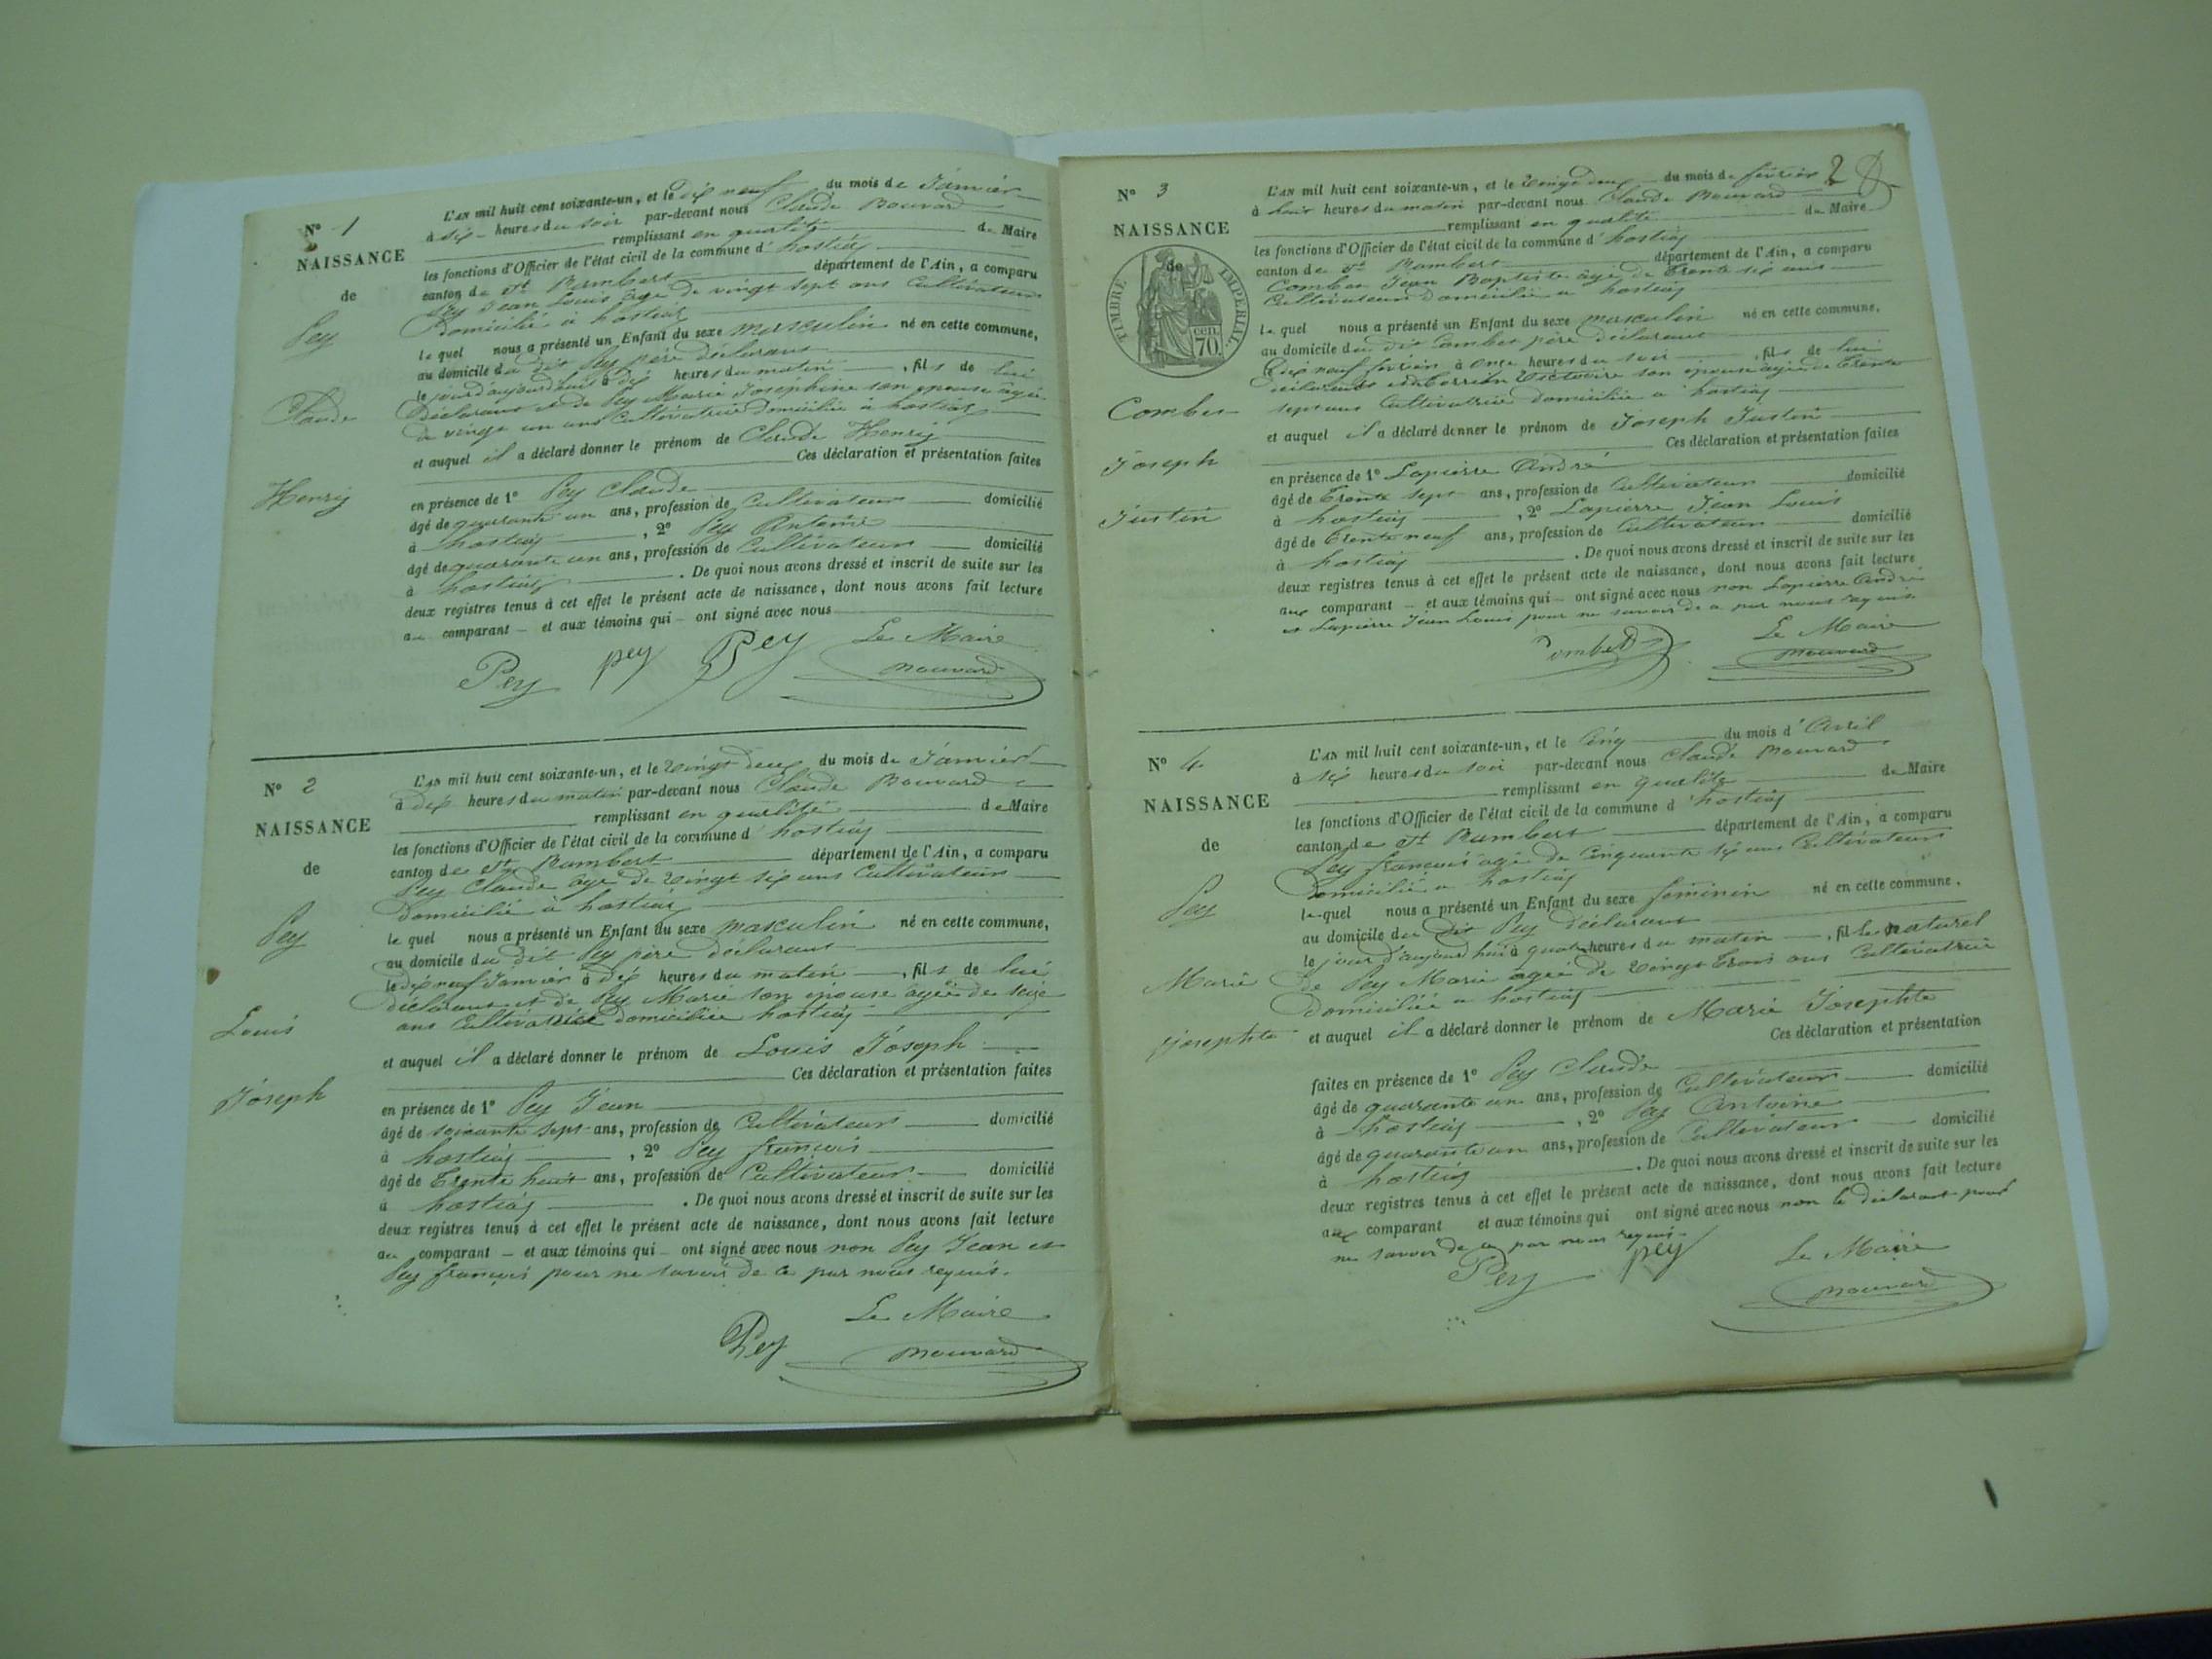 N° 1
NAISSANCE
de
Pey
Claude
Henry
L'AN mil huit cent soixante-un, et le dix neuf du mois de Janvier
à six heures du soir par-devant nous Claude Bouvard
remplissant en qualité de Maire
les fonctions d'Officier de l'état civil de la commune d'hostiaz
canton de St Rambert département de l'Ain, a comparu
Pey Jean Louis âgé de vingt sept ans Cultivateur
domicilié à hostiaz
le quel nous a présenté un Enfant du sexe masculin né en cette commune,
au domicile du dit Pey père déclarant
le jour d'aujourd'hui à dix heures du matin, fils de lui
déclarant et de Pey Marie Joséphine son épouse âgée
de vingt un ans Cultivatrice domiciliée à hostiaz
et auquel il a déclaré donner le prénom de Claude Henry
Ces déclaration et présentation faites
en présence de 1° Pey Claude
âgé de quarante un ans, profession de Cultivateur domicilié
à hostiaz, 2° Pey Antoine
âgé de quarante un ans, profession de Cultivateur domicilié
à hostiaz. De quoi nous avons dressé et inscrit de suite sur les
deux registres tenus à cet effet le présent acte de naissance, dont nous avons fait lecture
au comparant – et aux témoins qui – ont signé avec nous
Pey pey Pey Le Maire
Bouvard
N° 2
NAISSANCE
de
Pey
Louis
Joseph
L'AN mil huit cent soixante-un, et le vingt deux du mois de Janvier
à dix heures du matin par-devant nous Claude Bouvard
remplissant en qualité de Maire
les fonctions d'Officier de l'état civil de la commune d'hostiaz
canton de St Rambert département de l'Ain, a comparu
Pey Claude âgé de vingt six ans Cultivateur
domicilié à hostiaz
le quel nous a présenté un Enfant du sexe masculin né en cette commune,
au domicile du dit Pey père déclarant
le dix neuf Janvier à dix heures du matin, fils de lui
déclarant et de Pey Marie son épouse âgée de seize
ans Cultivatrice domiciliée hostiaz
et auquel il a déclaré donner le prénom de Louis Joseph
Ces déclaration et présentation faites
en présence de 1° Pey Jean
âgé de soixante sept ans, profession de Cultivateur domicilié
à hostiaz, 2° Pey françois
âgé de trente huit ans, profession de Cultivateur domicilié
à hostiaz. De quoi nous avons dressé et inscrit de suite sur les
deux registres tenus à cet effet le présent acte de naissance, dont nous avons fait lecture
au comparant – et aux témoins qui – ont signé avec nous non Pey Jean et
Pey françois pour ne savoir de ce par nous requis.
Le Maire
Pey Bouvard
2
N° 3
NAISSANCE
de
TIMBRE IMPERIAL
70 cen.
Combet
Joseph
Justin
L'AN mil huit cent soixante-un, et le vingt deux du mois de février
à huit heures du matin par-devant nous Claude Bouvard
remplissant en qualité de Maire
les fonctions d'Officier de l'état civil de la commune d'hostiaz
canton de St Rambert département de l'Ain, a comparu
Combet Jean Baptiste âgé de trente six ans
Cultivateur domicilié à hostiaz
le quel nous a présenté un Enfant du sexe masculin né en cette commune,
au domicile du dit Combet père déclarant
le dix neuf février à onze heures du soir, fils de lui
déclarant et Victoire son épouse âgée de trente
sept ans Cultivatrice domiciliée à hostiaz
et auquel il a déclaré donner le prénom de Joseph Justin
Ces déclaration et présentation faites
en présence de 1° Lapierre André
âgé de trente sept ans, profession de Cultivateur domicilié
à hostiaz, 2° Lapierre Jean Louis
âgé de trente neuf ans, profession de Cultivateur domicilié
à hostiaz. De quoi nous avons dressé et inscrit de suite sur les
deux registres tenus à cet effet le présent acte de naissance, dont nous avons fait lecture
aux comparant – et aux témoins qui – ont signé avec nous non Lapierre André
et Lapierre Jean Louis pour ne savoir de ce par nous requis.
Combet Le Maire
Bouvard
N° 4
NAISSANCE
de
Pey
Marie
Josephte
L'AN mil huit cent soixante-un, et le cinq du mois d'Avril
à six heures du soir par-devant nous Claude Bouvard
remplissant en qualité de Maire
les fonctions d'Officier de l'état civil de la commune d'hostiaz
canton de St Rambert département de l'Ain, a comparu
Pey françois âgé de cinquante six ans Cultivateur
domicilié à hostiaz
le quel nous a présenté un Enfant du sexe feminin né en cette commune,
au domicile du dit Pey déclarant
le jour d'aujourd'hui à quatre heures du matin, fille naturel
de Pey Marie agée de vingt trois ans Cultivatrice
domiciliée à hostiaz
et auquel il a déclaré donner le prénom de Marie Josephte
Ces déclaration et présentation
faites en présence de 1° Pey Claude
âgé de quarante un ans, profession de Cultivateur domicilié
à hostiaz, 2° Pey Antoine
âgé de quarante un ans, profession de Cultivateur domicilié
à hostiaz. De quoi nous avons dressé et inscrit de suite sur les
deux registres tenus à cet effet le présent acte de naissance, dont nous avons fait lecture
aux comparant et aux témoins qui ont signé avec nous non le déclarant pour
ne savoir de ce par nous requis.
Pey pey Le Maire
Bouvard